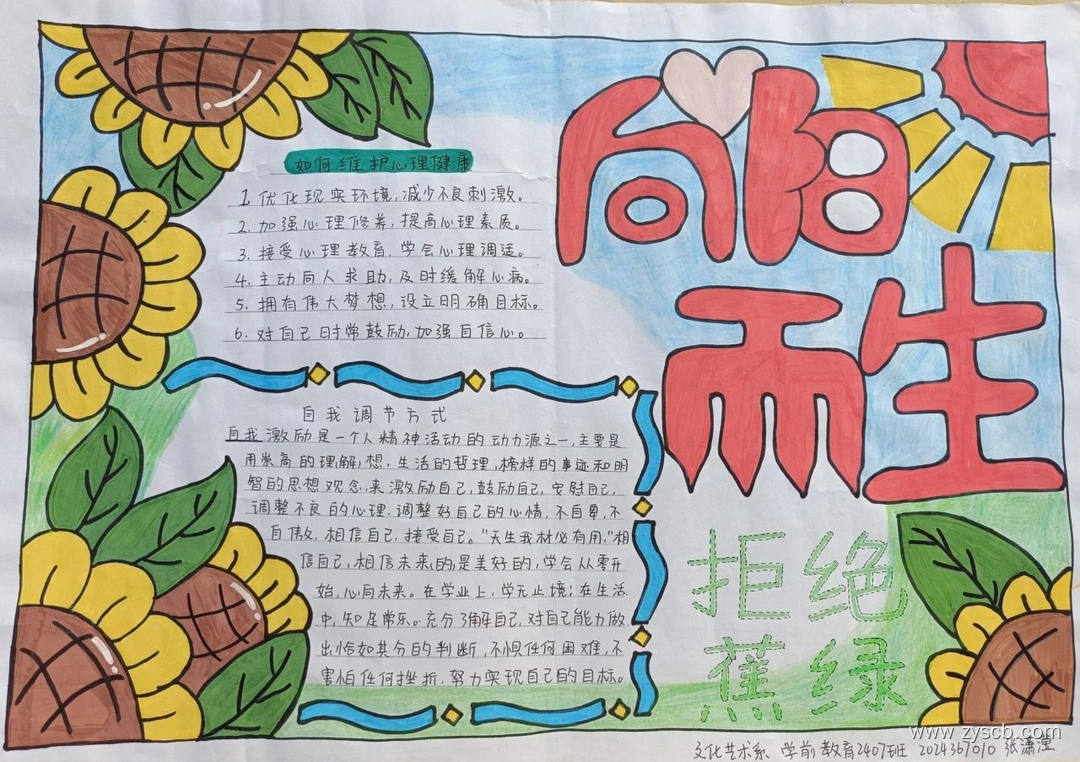 向阳
而生
如何维护心理健康
1. 优化现实环境,减少不良刺激。
2. 加强心理修养,提高心理素质。
3. 接受心理教育,学会心理调适。
4. 主动向人求助,及时缓解心病。
5. 拥有伟大梦想,设立明确目标。
6. 对自己时常鼓励,加强自信心。
自我调节方式
自我激励是一个人精神活动的动力源之一,主要是
用崇高的理解,想,生活的哲理,榜样的事迹和明
智的思想观念,来激励自己,鼓励自己,安慰自己,
调整不良的心理,调整好自己的心情,不自卑,不
自傲,相信自己,接受自己。"天生我材必有用,"相
信自己,相信未来的是美好的,学会从零开
始,心向未来。在学业上,学无止境;在生活
中,知足常乐。充分了解自己,对自己能力做
出恰如其分的判断,不惧任何困难,不
害怕任何挫折,努力实现自己的目标。
拒绝
蕉绿
文化艺术系 学前教育2407班 2024367010 张潇滢
www.zyscb.com